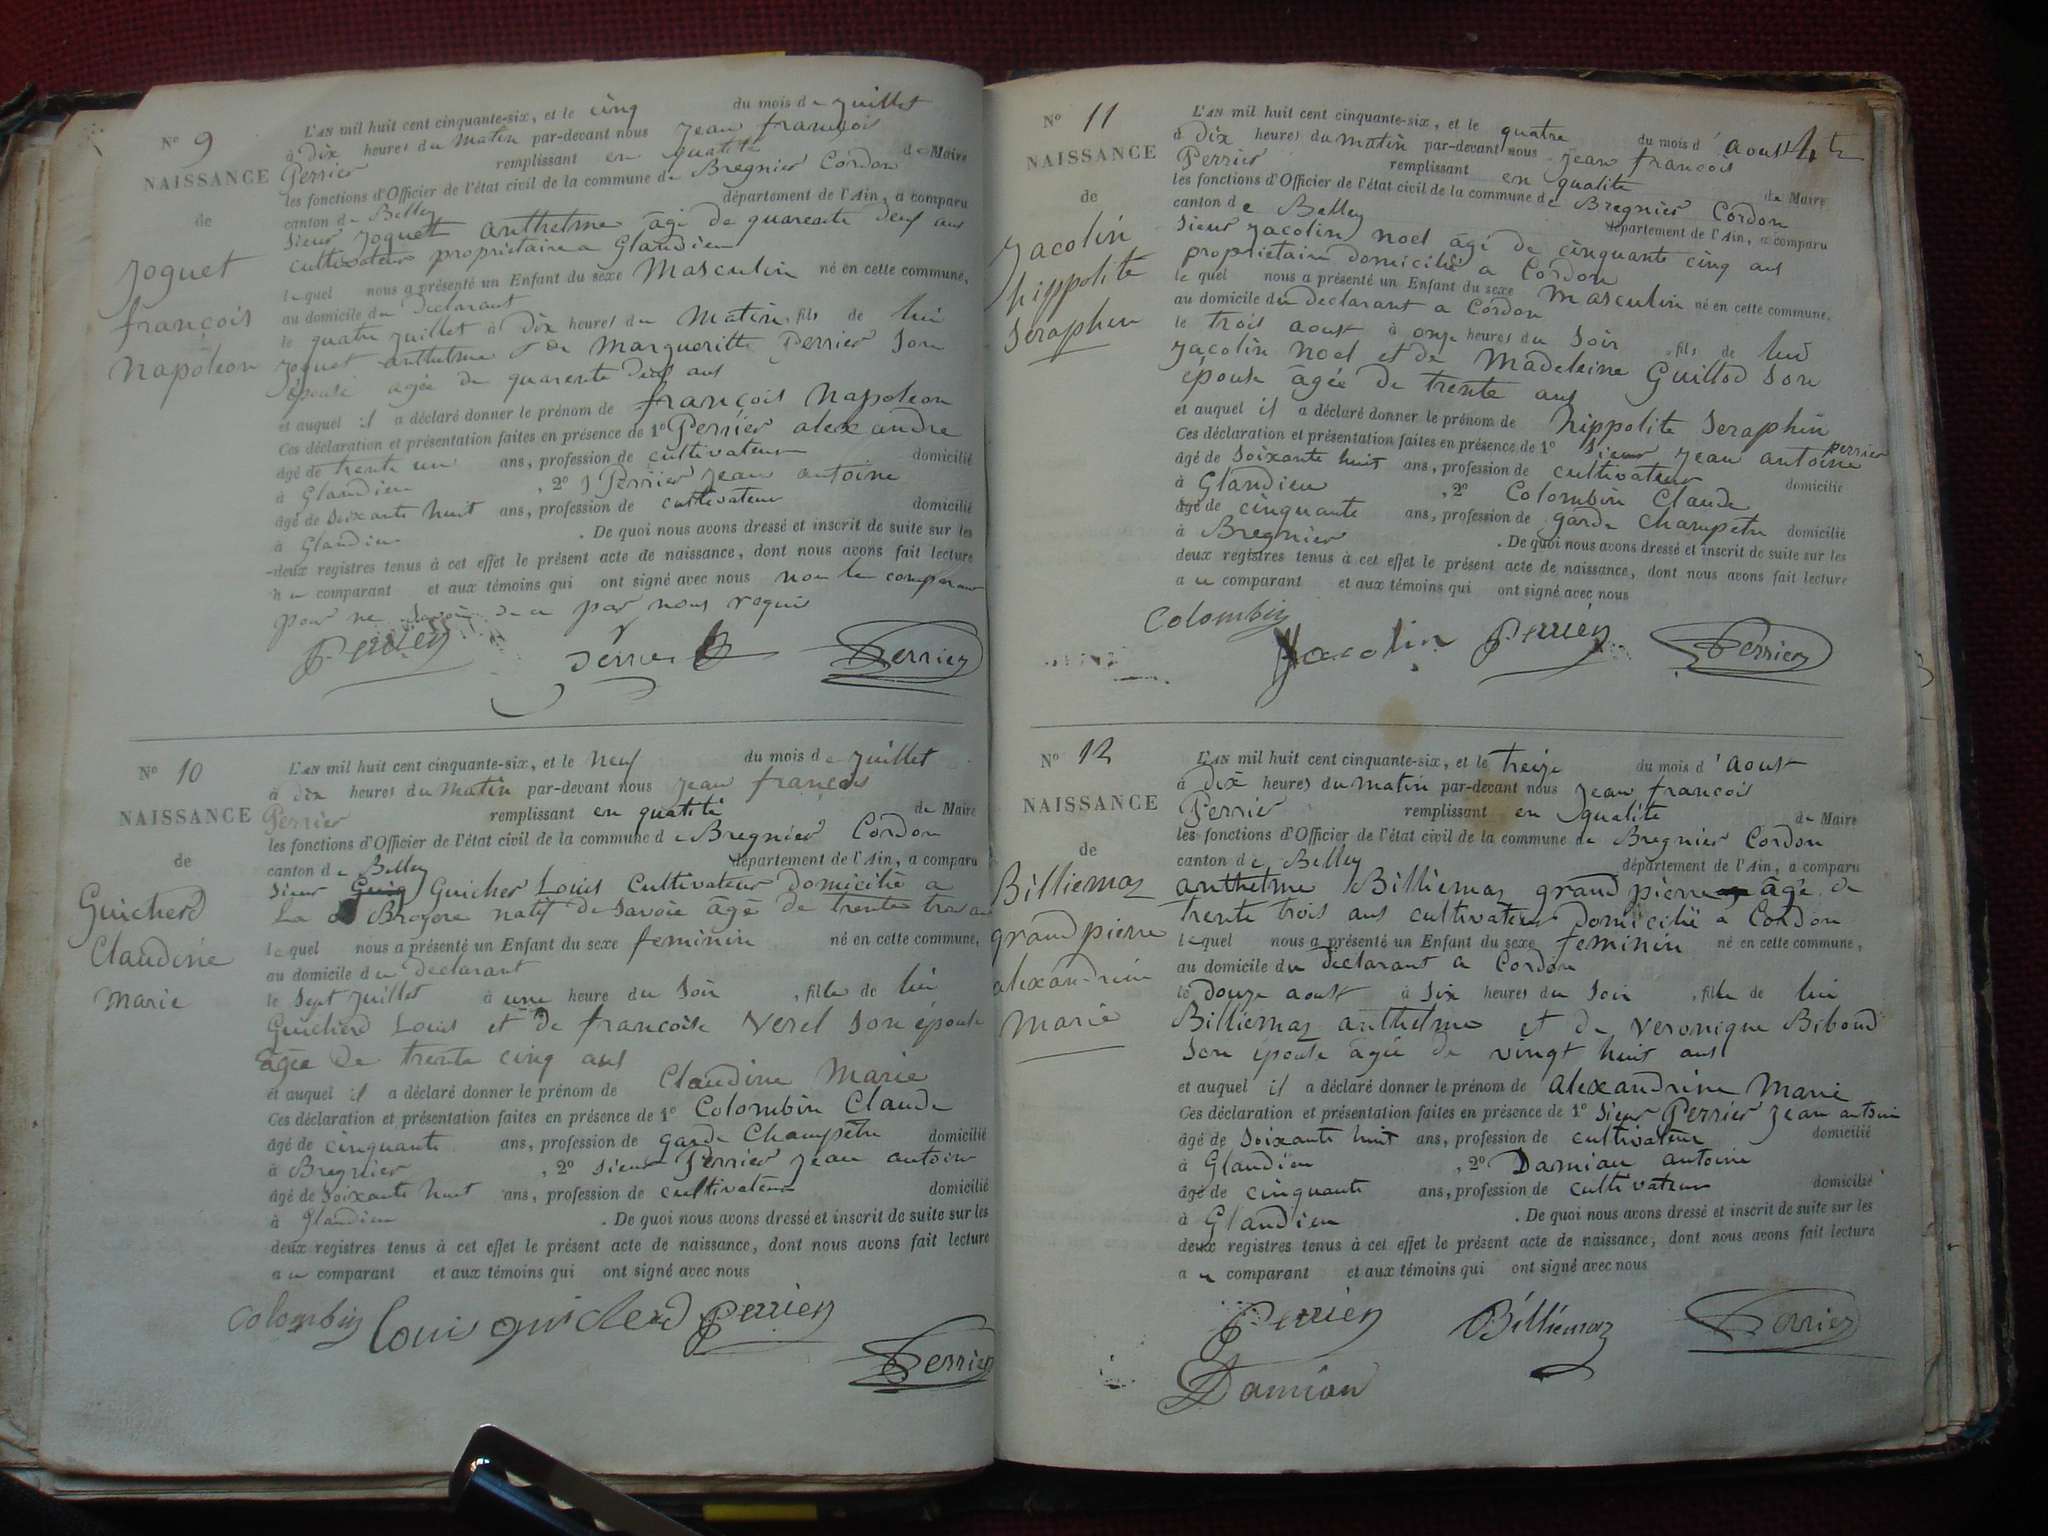 N° 9
NAISSANCE
de
Joquet
françois
Napoleon
L'AN mil huit cent cinquante-six, et le cinq du mois de juillet
à dix heures du matin par-devant nous jean françois
Perrier remplissant en qualité de Maire
les fonctions d'Officier de l'état civil de la commune de Bregnier Cordon
canton de Belley département de l'Ain, a comparu
sieur joquet anthelme âgé de quarente neuf ans
cultivateur propriétaire a Glandieu
lequel nous a présenté un Enfant du sexe Masculin né en cette commune,
au domicile du declarant
le quatre juillet à dix heures du Matin, fils de lui
joquet anthelme et de Margueritte Perrier son
épouse agée de quarente ans
et auquel il a déclaré donner le prénom de françois Napoleon
Ces déclaration et présentation faites en présence de 1° Perrier alexandre
âgé de trente un ans, profession de cultivateur domicilié
à Glandieu , 2° Perrier jean antoine
âgé de soixante huit ans, profession de cultivateur domicilié
à Glandieu . De quoi nous avons dressé et inscrit de suite sur les
deux registres tenus à cet effet le présent acte de naissance, dont nous avons fait lecture
au comparant et aux témoins qui ont signé avec nous non le comparant
pour ne savoir de ce par nous requis
Perrier Perrier
N° 10
NAISSANCE
de
Guicherd
Claudine
Marie
L'AN mil huit cent cinquante-six, et le neuf du mois de juillet
à dix heures du matin par-devant nous jean françois
Perrier remplissant en qualité de Maire
les fonctions d'Officier de l'état civil de la commune de Bregnier Cordon
canton de Belley département de l'Ain, a comparu
sieur Guig Guicher Louis Cultivateur domicilié a
La Broyere natif de Savoie âgé de trente trois ans
lequel nous a présenté un Enfant du sexe feminin né en cette commune,
au domicile du declarant
le sept juillet à une heure du soir , fille de lui
Guicherd Louis et de francoise Verel son épouse
âgée de trente cinq ans
et auquel il a déclaré donner le prénom de Claudine Marie
Ces déclaration et présentation faites en présence de 1° Colombin Claude
âgé de cinquante ans, profession de garde Champêtre domicilié
à Bregnier , 2° sieur Perrier jean antoine
âgé de soixante huit ans, profession de cultivateur domicilié
à Glandieu . De quoi nous avons dressé et inscrit de suite sur les
deux registres tenus à cet effet le présent acte de naissance, dont nous avons fait lecture
au comparant et aux témoins qui ont signé avec nous
Colombin Louis guicherd Perrier
Perrier
N° 11
NAISSANCE
de
Jacolin
hippolite
Seraphin
L'AN mil huit cent cinquante-six, et le quatre du mois d'aoust
à dix heures du matin par-devant nous jean françois
Perrier remplissant en qualité de Maire
les fonctions d'Officier de l'état civil de la commune de Bregnier Cordon
canton de Belley département de l'Ain, a comparu
sieur jacolin noel âgé de cinquante cinq ans
propriétaire domicilié a Cordon
lequel nous a présenté un Enfant du sexe Masculin né en cette commune,
au domicile du declarant a Cordon
le trois aoust à onze heures du soir , fils de lui
jacolin noel et de Madeleine Guillod son
épouse âgée de trente ans
et auquel il a déclaré donner le prénom de hippolite seraphin
Ces déclaration et présentation faites en présence de 1° sieur jean antoine perrier
âgé de soixante huit ans, profession de cultivateur domicilié
à Glandieu , 2° Colombin Claude
âgé de cinquante ans, profession de garde Champêtre domicilié
à Bregnier . De quoi nous avons dressé et inscrit de suite sur les
deux registres tenus à cet effet le présent acte de naissance, dont nous avons fait lecture
au comparant et aux témoins qui ont signé avec nous
Colombin Jacolin Perrier Perrier
N° 12
NAISSANCE
de
Billiemaz
grandpierre
alexandrine
Marie
L'AN mil huit cent cinquante-six, et le treize du mois d'aoust
à dix heures du matin par-devant nous jean françois
Perrier remplissant en qualité de Maire
les fonctions d'Officier de l'état civil de la commune de Bregnier Cordon
canton de Belley département de l'Ain, a comparu
anthelme Billiemaz grandpierre âgé de
trente trois ans cultivateur domicilié a Cordon
lequel nous a présenté un Enfant du sexe feminin né en cette commune,
au domicile du declarant a Cordon
le douze aoust à six heures du soir , fille de lui
Billiemaz anthelme et de veronique Biboud
son épouse âgée de vingt huit ans
et auquel il a déclaré donner le prénom de alexandrine Marie
Ces déclaration et présentation faites en présence de 1° sieur Perrier jean antoine
âgé de soixante huit ans, profession de cultivateur domicilié
à Glandieu , 2° Damian antoine
âgé de cinquante ans, profession de cultivateur domicilié
à Glandieu . De quoi nous avons dressé et inscrit de suite sur les
deux registres tenus à cet effet le présent acte de naissance, dont nous avons fait lecture
au comparant et aux témoins qui ont signé avec nous
Perrier Billiemaz Perrier
Damian